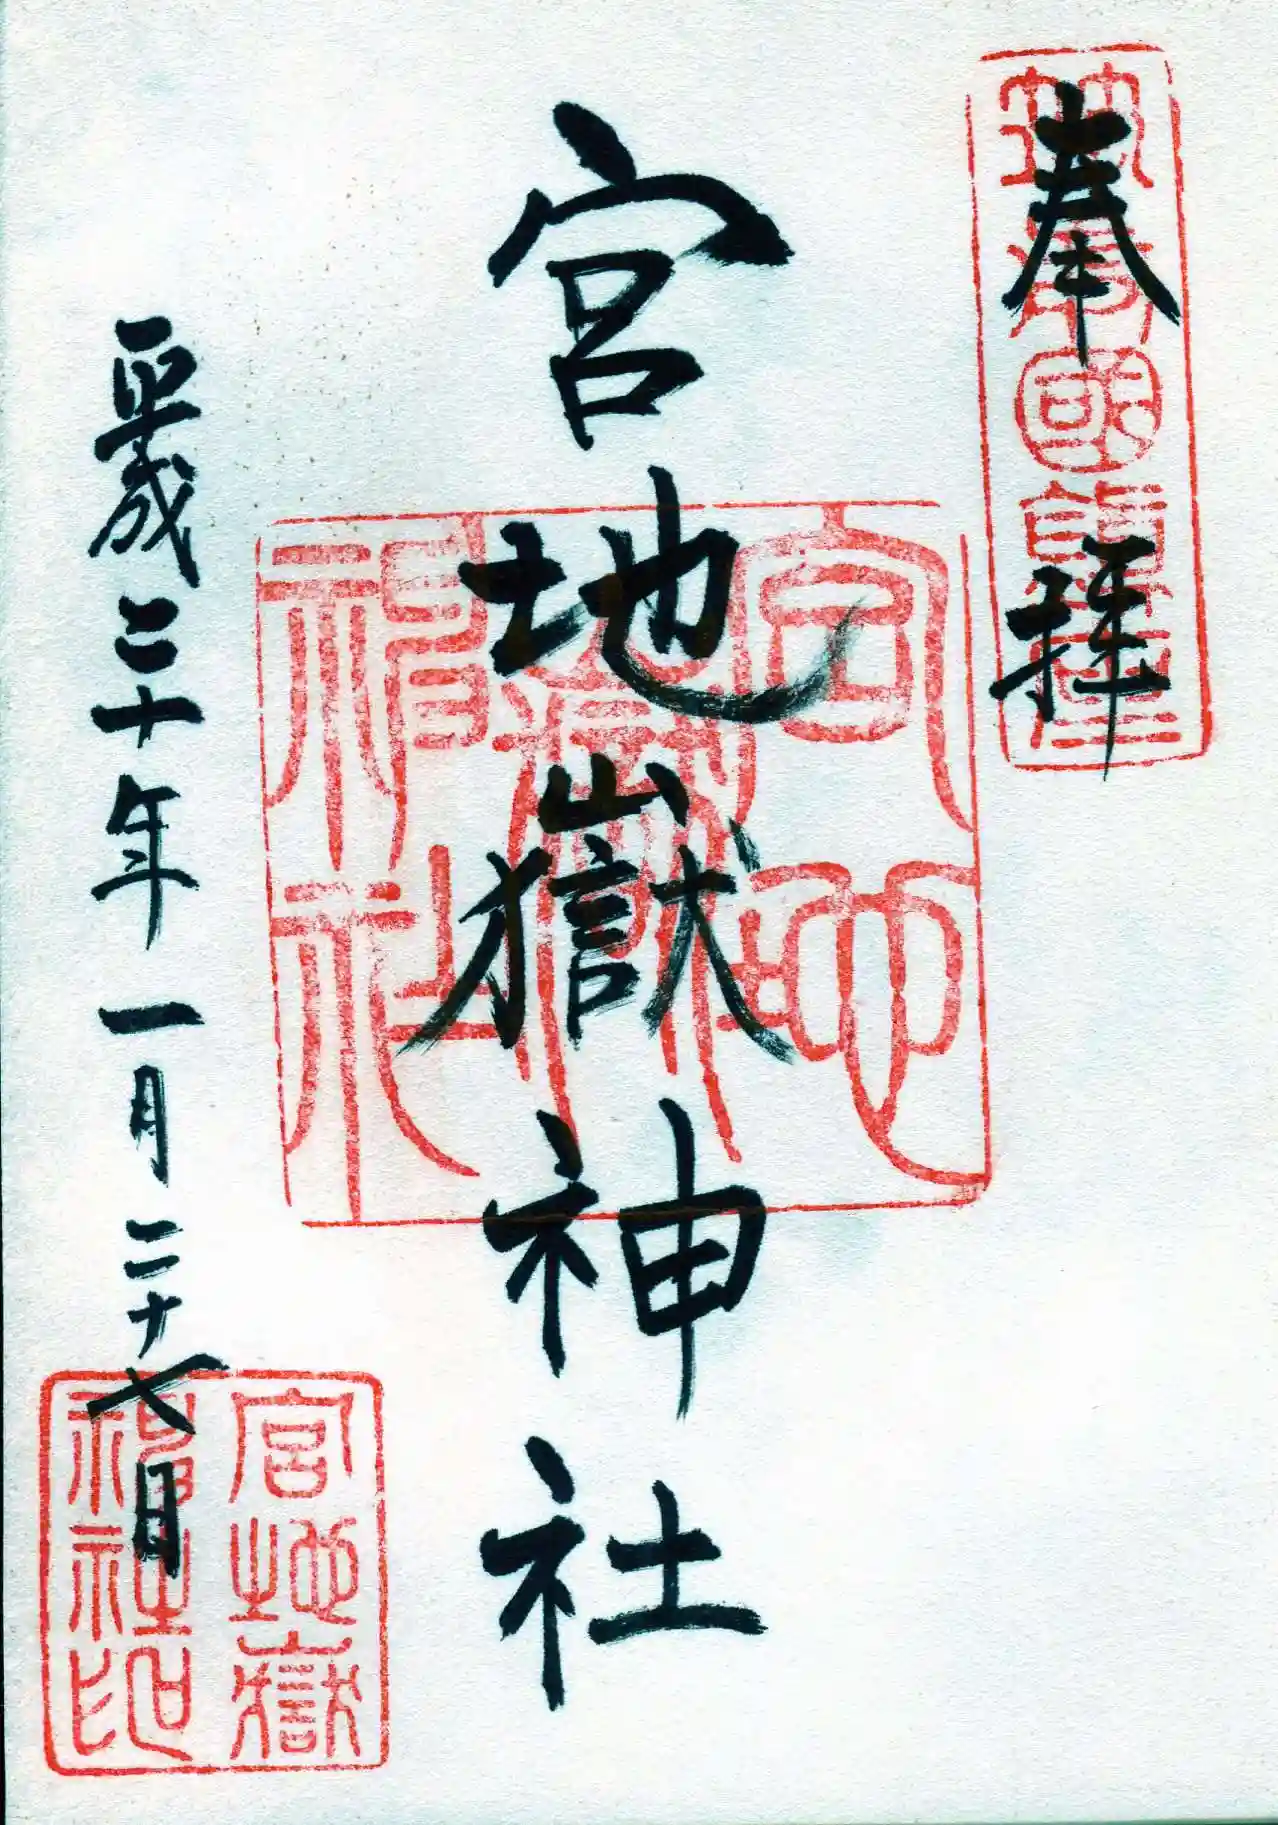 奉拝
筑前國鎮座
宮地嶽神社
宮地
嶽
神社
平成二十年一月二十七日
宮地嶽
神社印